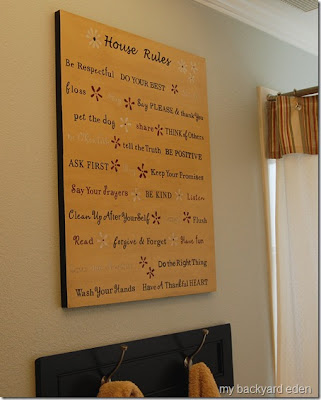 House Rules
Be Respectful DO YOUR BEST
floss Say PLEASE & thank You
pet the dog share THINK of Others
tell the Truth BE POSITIVE
ASK FIRST Keep Your Promises
Say Your Prayers BE KIND Listen
Clean Up After Yourself Flush
Read forgive & Forget Have Fun
Do the Right Thing
Wash Your Hands Have A Thankful HEART
my backyard eden